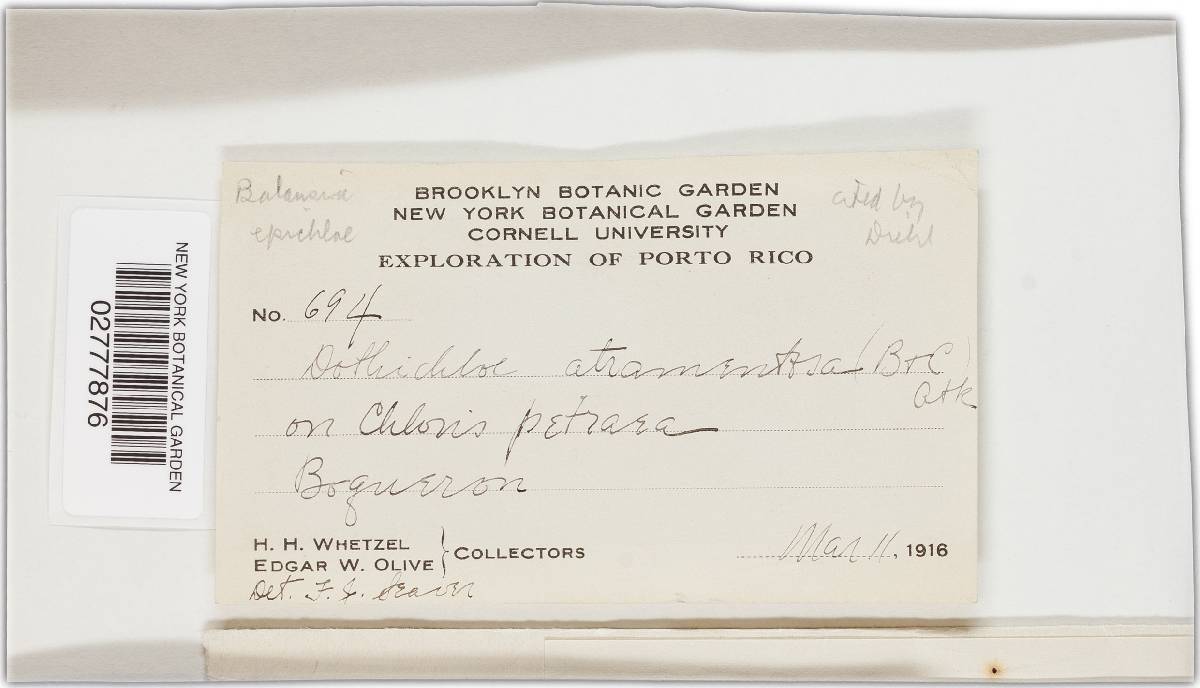 Balansia
epichloe
cited by
Diehl
BROOKLYN BOTANIC GARDEN
NEW YORK BOTANICAL GARDEN
CORNELL UNIVERSITY
EXPLORATION OF PORTO RICO
No. 694
Dothichloe atramentosa (B+C)
Atk
on Chloris petraea
Boqueron
H. H. WHETZEL
EDGAR W. OLIVE } COLLECTORS
Mar 11, 1916
Det. F. J. Seaver
NEW YORK BOTANICAL GARDEN
02777876